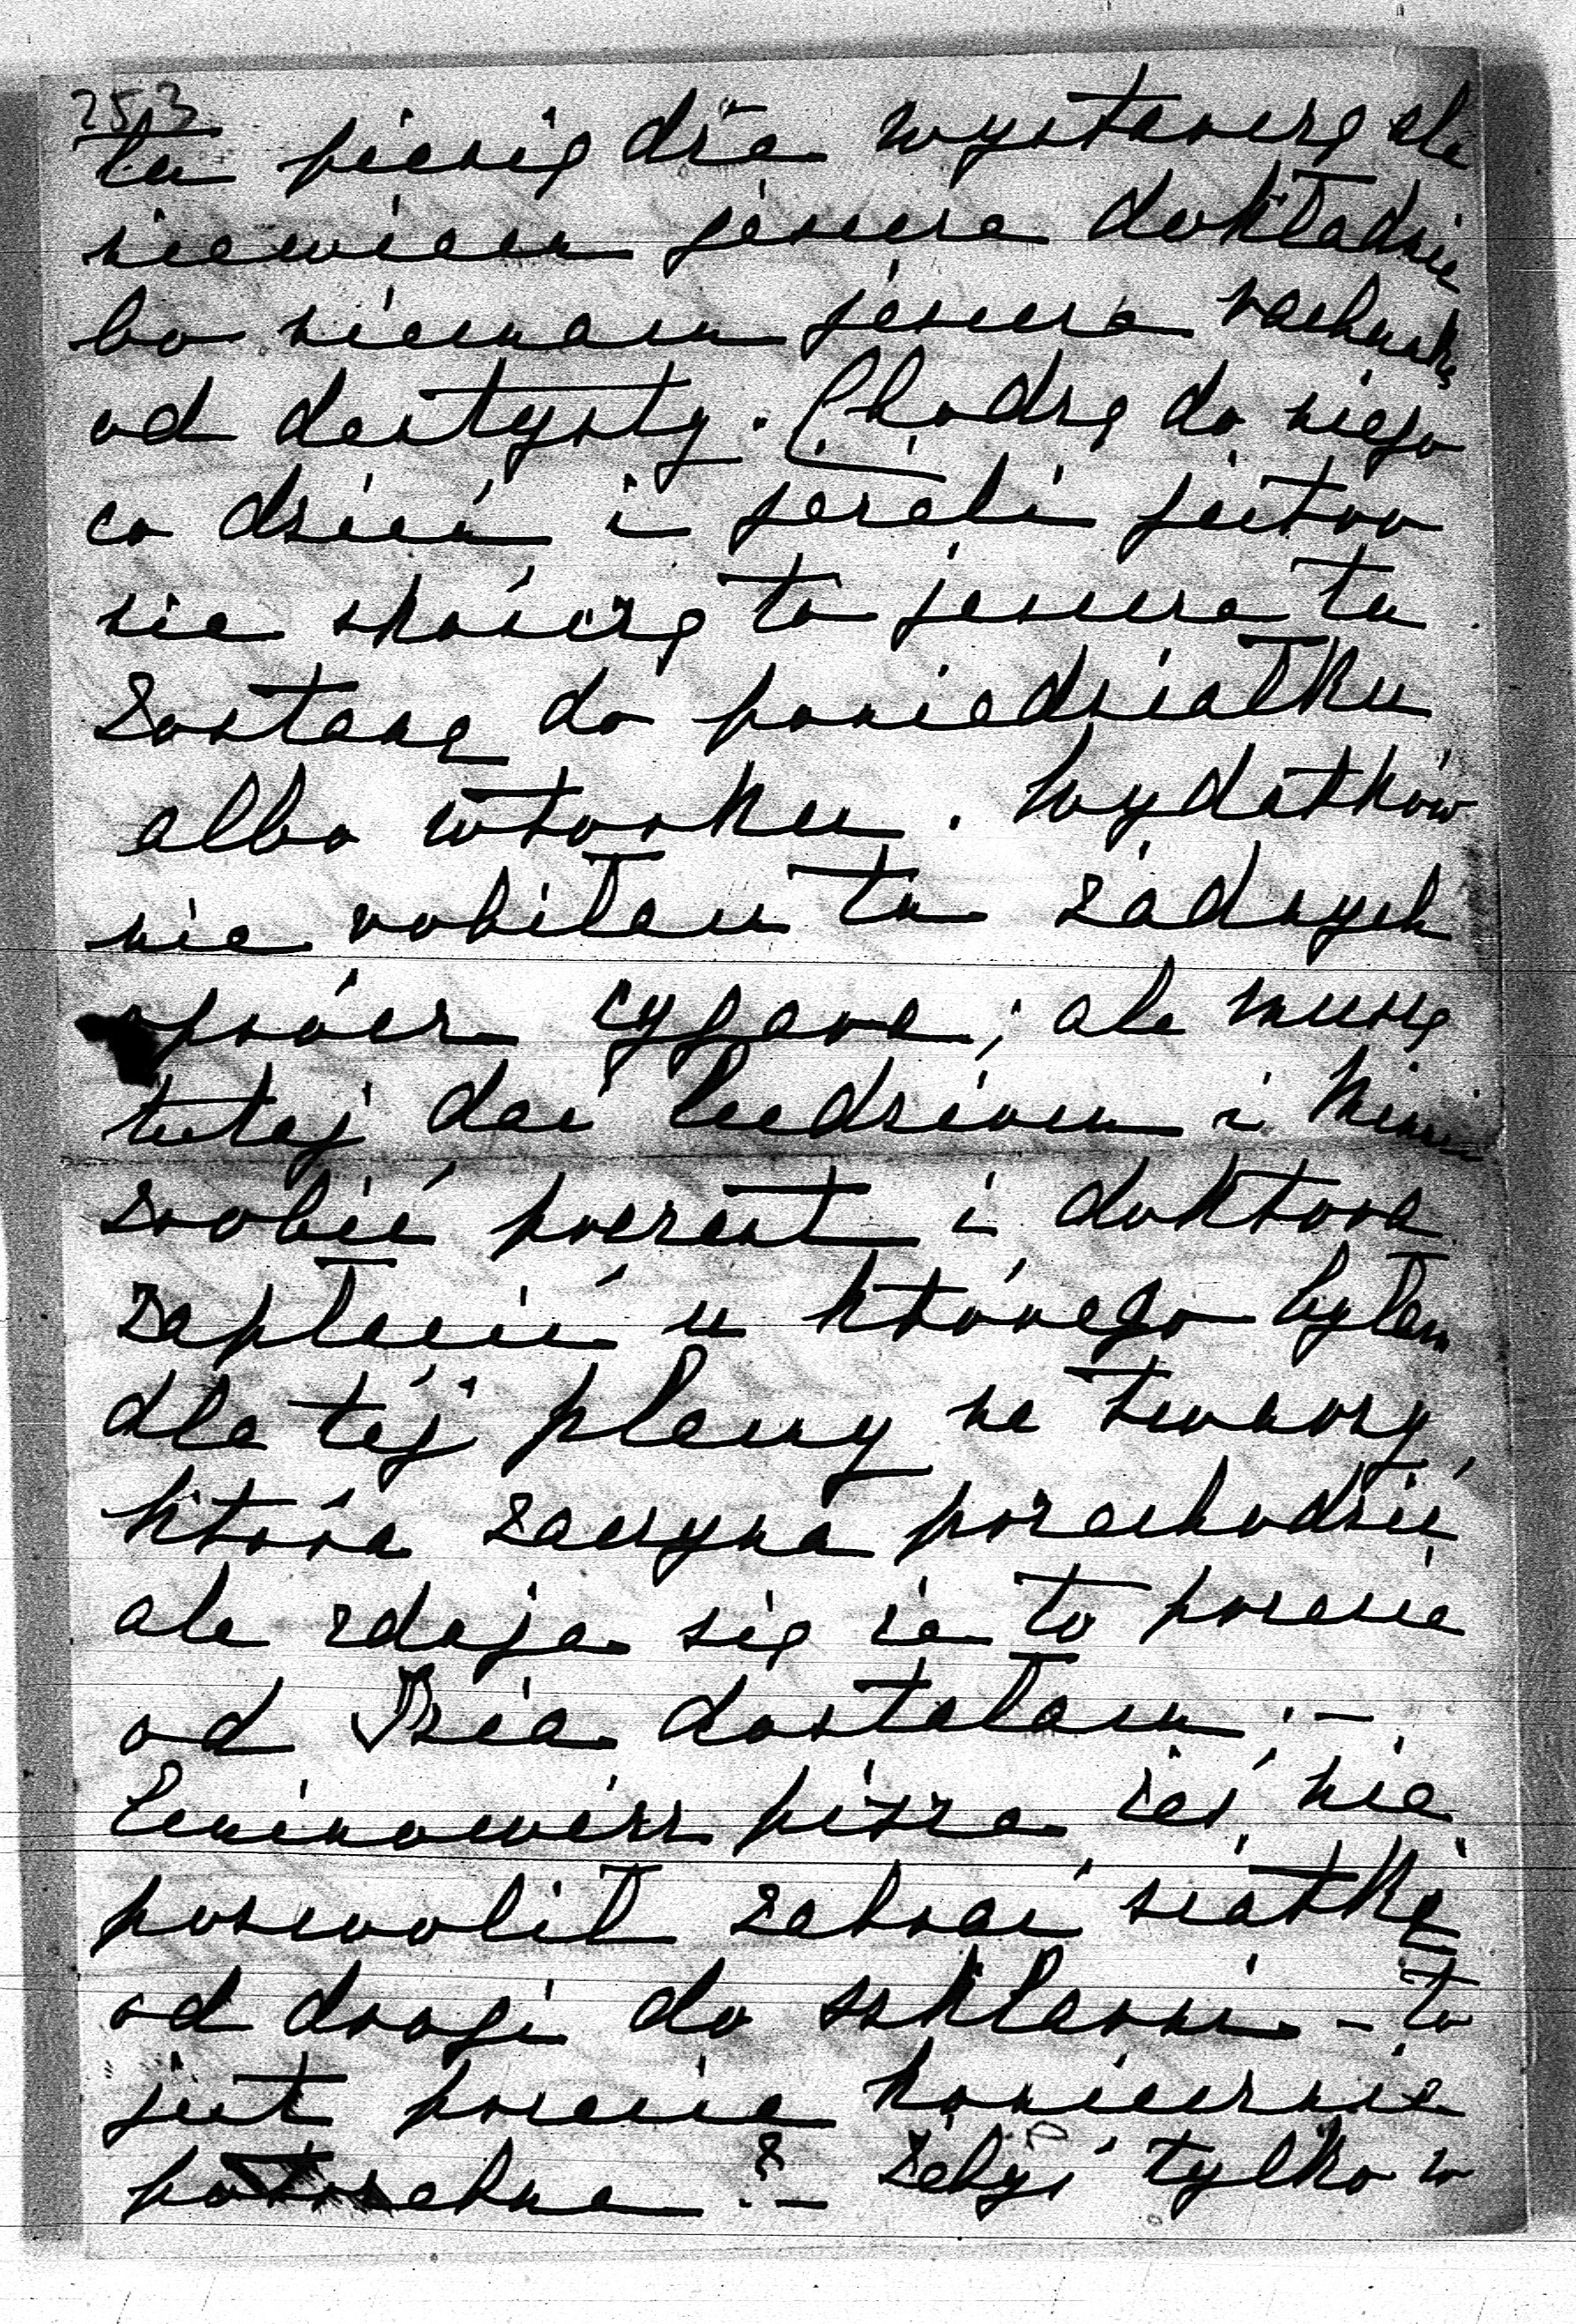 253
tu pieniędze wystarczę ale
niewiem jeszcze dokładnie
bo niemam jeszcze rachunku
od dentysty. Chodzę do niego
co dzień i jeżeli jutro
nie skończę to jeszcze tu
zostanę do poniedziałku
albo wtorku. Wydatków
nie robiłem tu żadnych
oprócz cygara; ale muszę
tutaj dać ludziom i
zrobić prezent i doktora
zapłacić u którego byłem
dla téj plamy na twarzy,
która zaczyna przechodzić
ale zdaje się że to pewnie
od dostałem. –
pisze żeś nie
pozwolił zabrać siatkę
od drogi do szklarni – to
jest pewnie koniecznie
potrzebne? – Żebyś tylko w